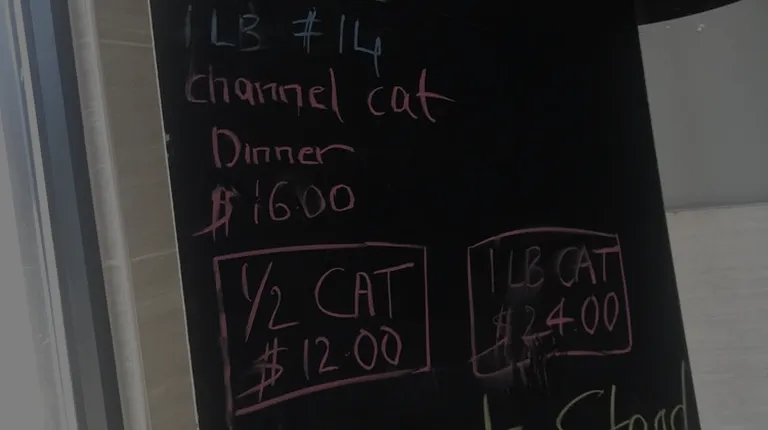 1 LB #14
channel cat
Dinner
$16.00
1/2 CAT
$12.00
1 LB CAT
$24.00
Stand